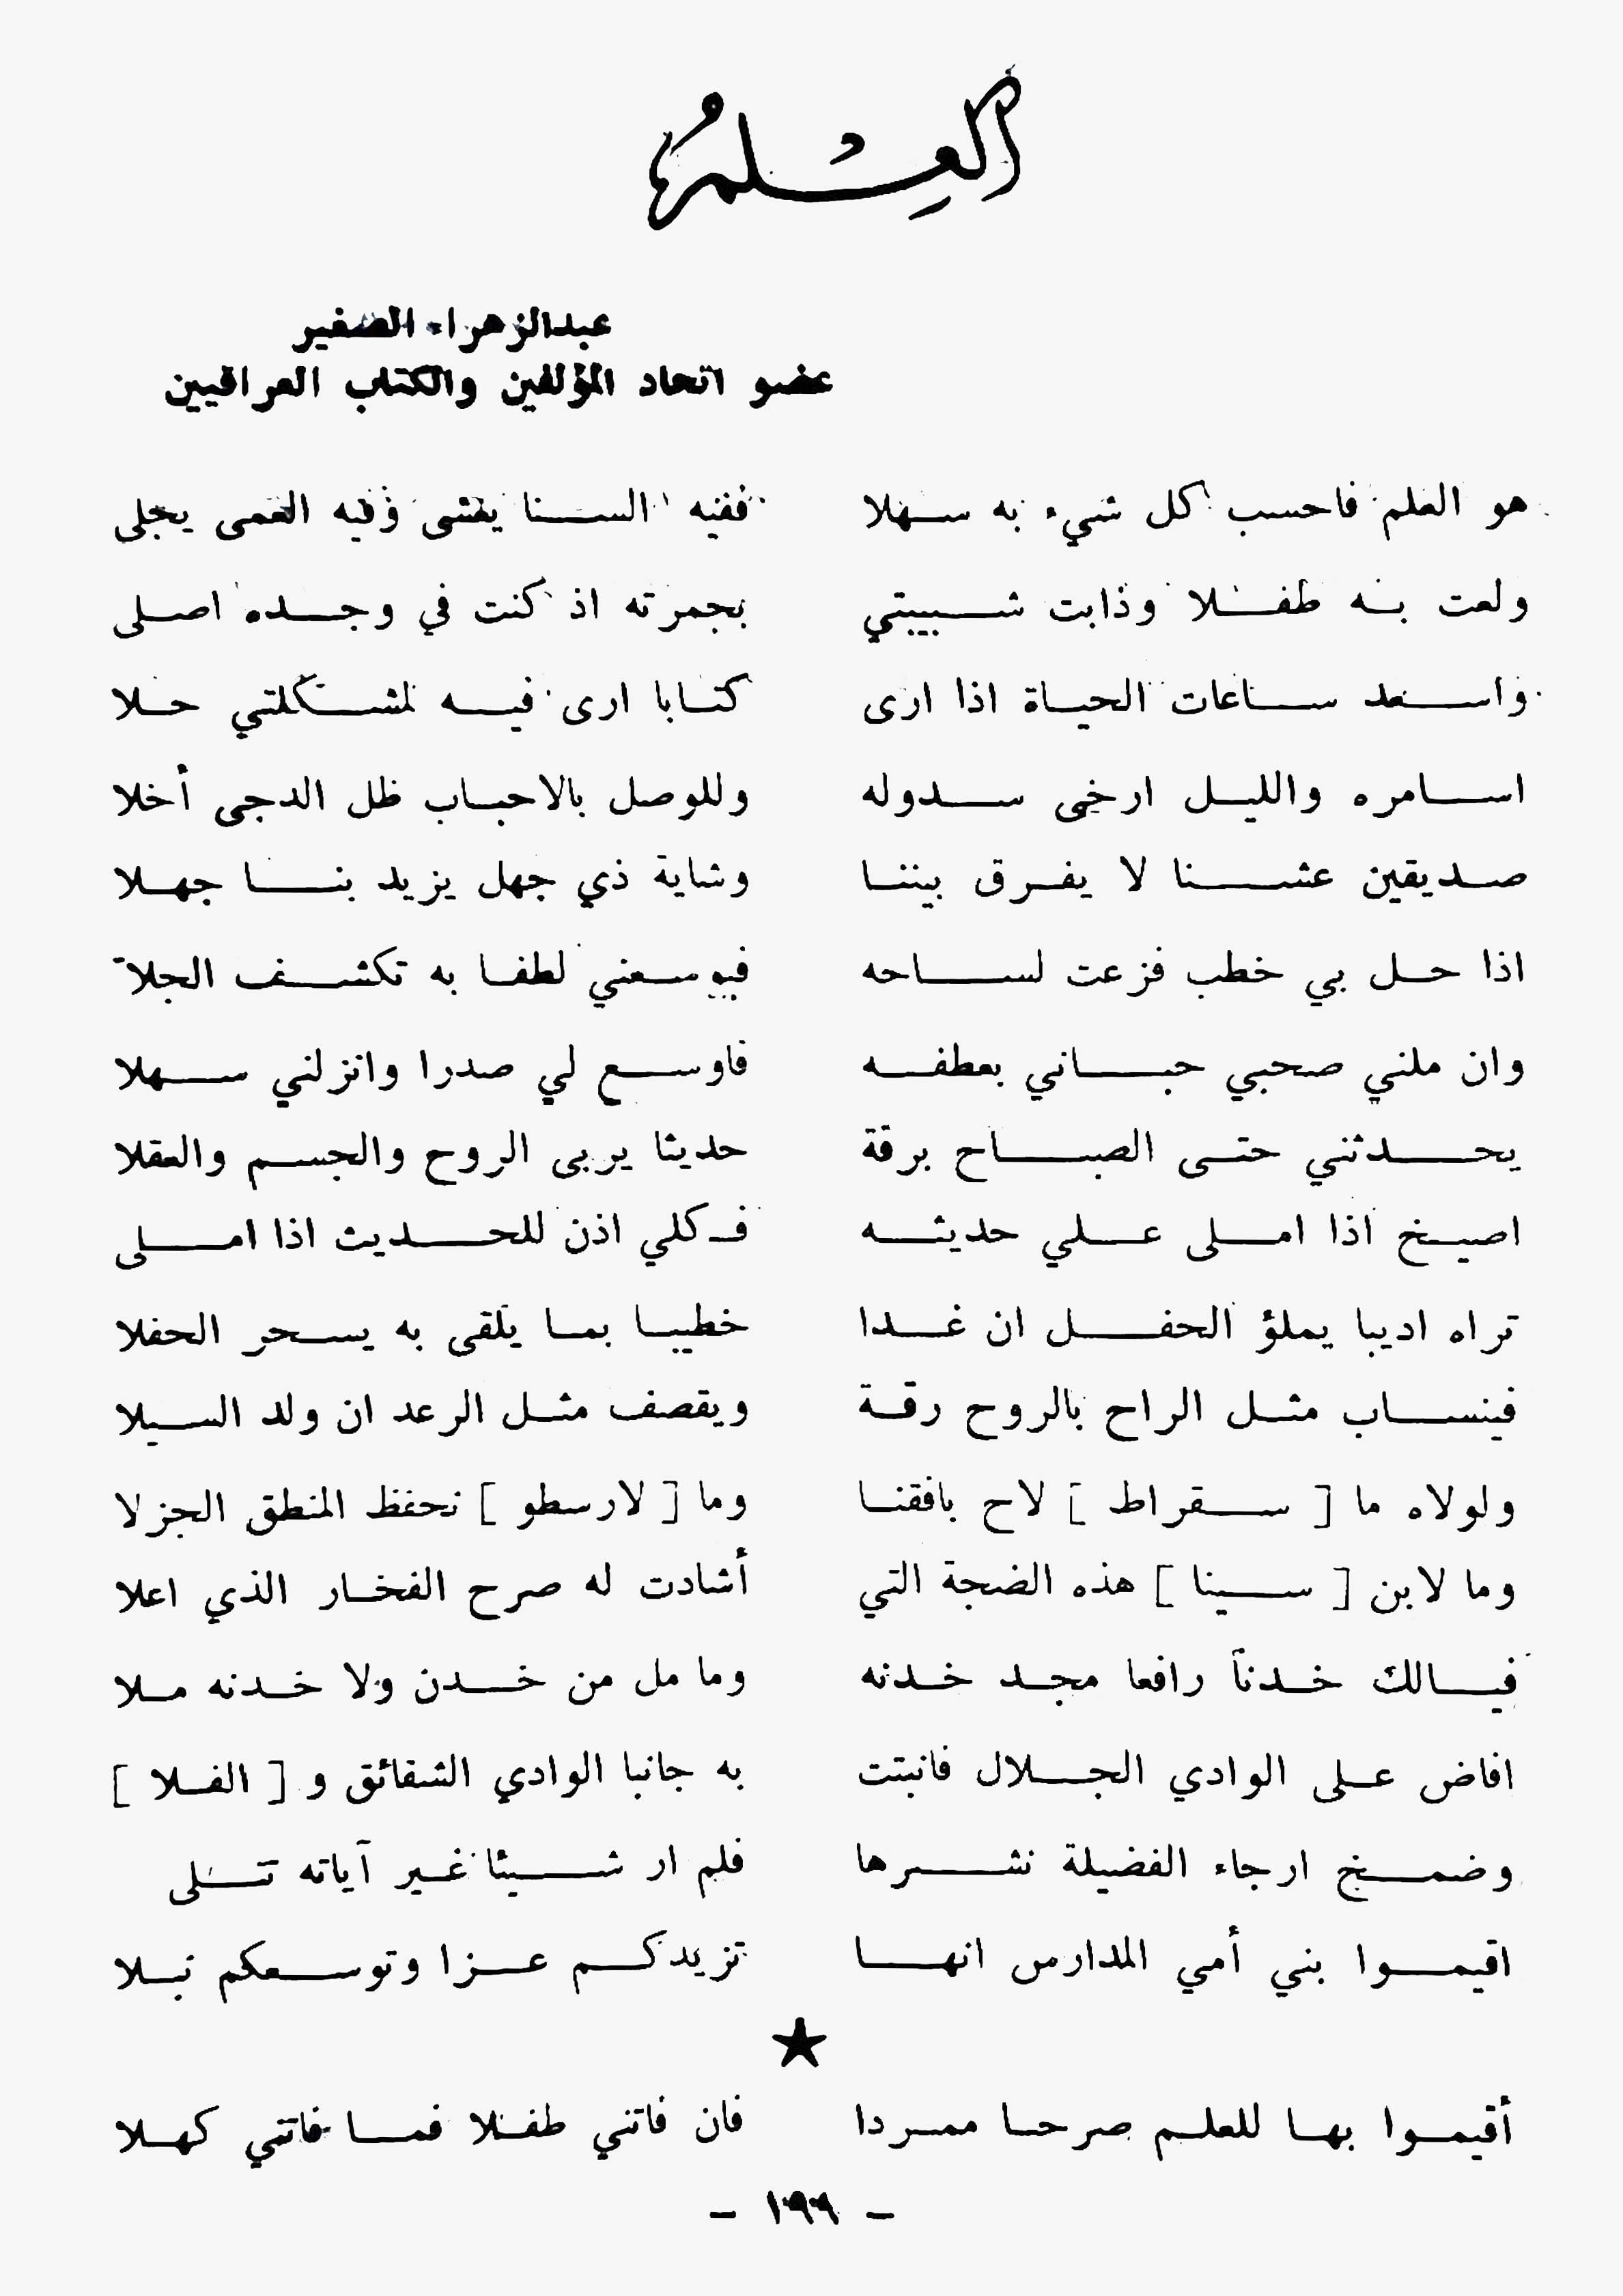 العِلمُ
عبدالزهراء الصغير
عضو اتحاد المؤلفين والكتاب العراقيين
هو العلم فاحسب كل شيء به سهلا ففيه السنا يغشى وفيه العمى يجلى
ولعت به طفلا وذابت شبيبتي بجمرته اذ كنت في وجده اصلى
واسعد ساعات الحياة اذا ارى كتابا ارى فيه لمشكلتي حلا
اسامره والليل ارخى سدوله وللوصل بالاحباب ظل الدجى أخلا
صديقين عشنا لا يفرق بيننا وشاية ذي جهل يزيد بنا جهلا
اذا حل بي خطب فزعت لساحه فيوسعني لطفا به تكشف الجلا
وان ملني صحبي حباني بعطفه فاوسع لي صدرا وانزلني سهلا
يحدثني حتى الصباح برقة حديثا يربى الروح والجسم والعقلا
اصيخ اذا املى علي حديثه فكلي اذن للحديث اذا املى
تراه اديبا يملؤ الحفل ان غدا خطيبا بما يلقى به يسحر الحفلا
فينساب مثل الراح بالروح رقة ويقصف مثل الرعد ان ولد السيلا
ولولاه ما [ سقراط ] لاح بافقنا وما [ لارسطو ] نحفظ المنطق الجزلا
وما لابن [ سينا ] هذه الضجة التي أشادت له صرح الفخار الذي اعلا
فيالك خدناً رافعا مجد خدنه وما مل من خدن ولا خدنه ملا
افاض على الوادي الجلال فانبتت به جانبا الوادي الشقائق و [ الفلا ]
وضمخ ارجاء الفضيلة نشرها فلم ار شيئا غير آياته تتلى
اقيموا بني أمي المدارس انها تزيدكم عزا وتوسعكم نبلا
★
أقيموا بها للعلم صرحا ممردا فان فاتني طفلا فما فاتني كهلا
- ١٩٩ -